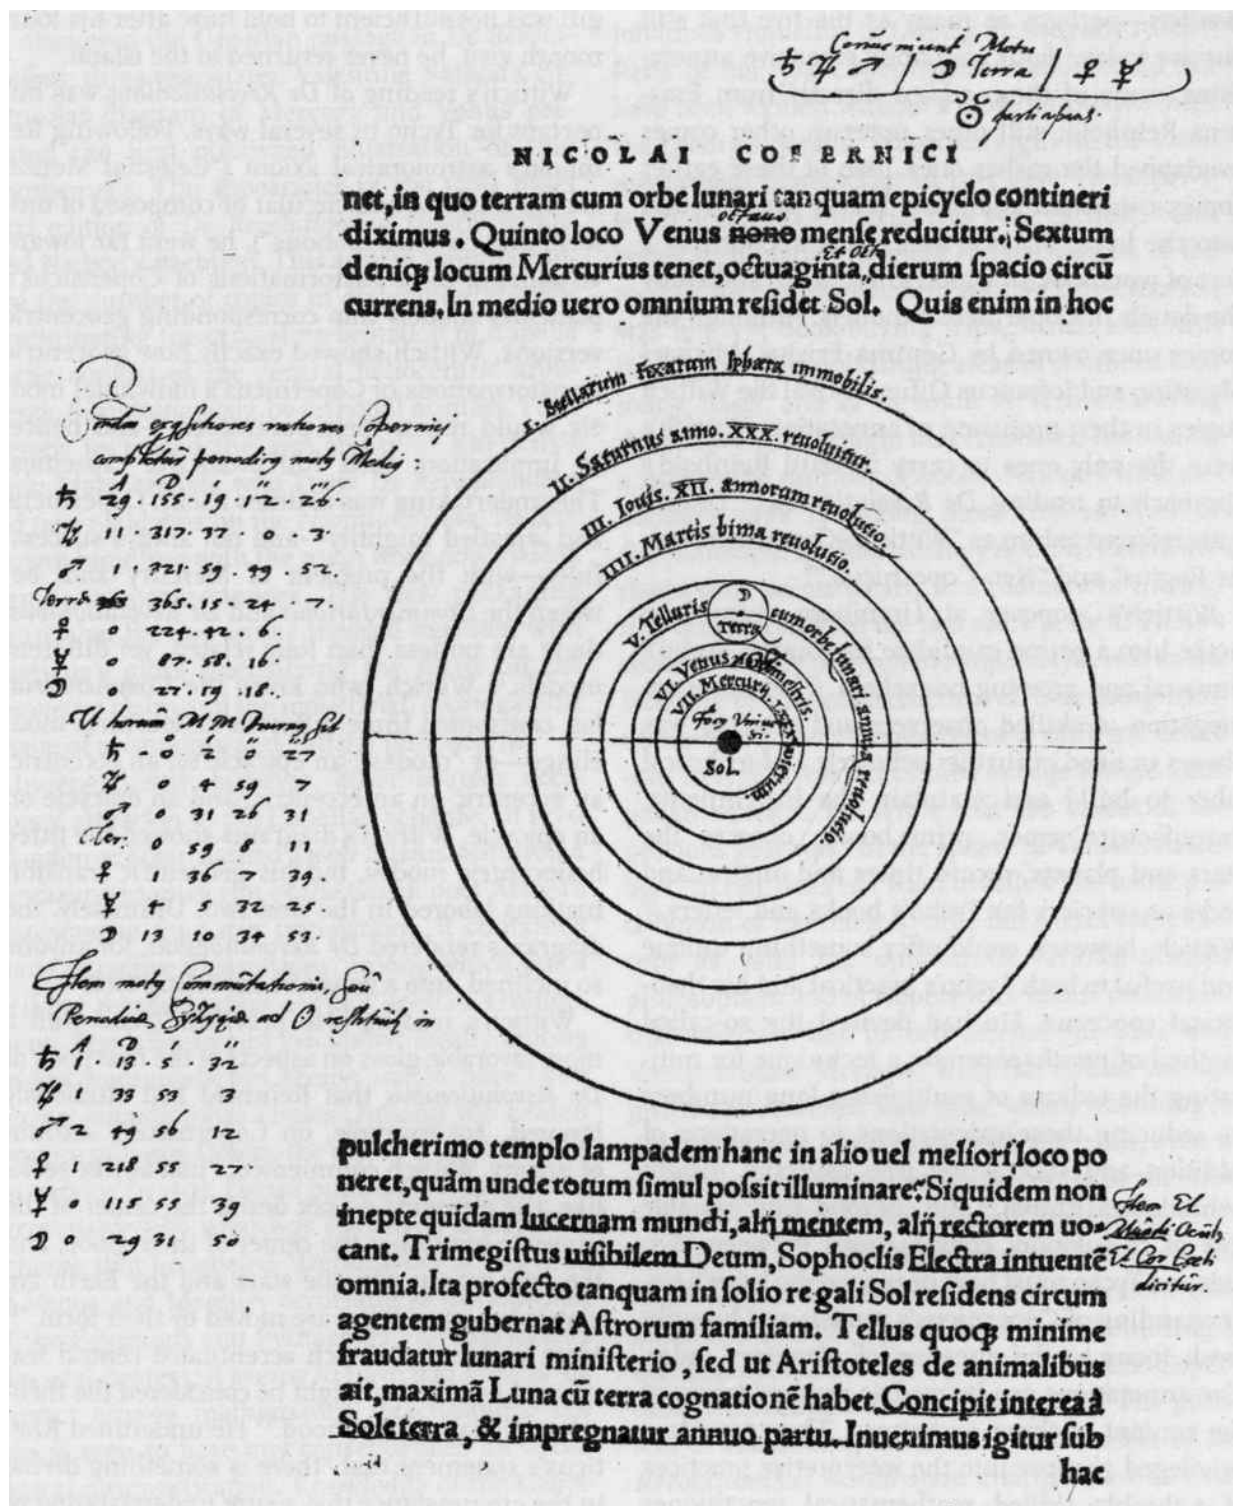 ♄ ♃ ♂ | ☽ Terra | ♀ ☿
☉
NICOLAI COPERNICI
net, in quo terram cum orbe lunari tanquam epicyclo contineri
diximus. Quinto loco Venus nono mense reducitur. Sextum
deniq; locum Mercurius tenet, octuaginta dierum spacio circũ
currens. In medio uero omnium residet Sol. Quis enim in hoc
I. Stellarum fixarum sphæra immobilis.
II. Saturnus anno. XXX. reuoluitur.
III. Iouis. XII. annorum reuolutio.
IIII. Martis bima reuolutio.
V. Telluris cum orbe lunari annua reuolutio.
☽
Terra
VI. Venus nonimestris.
VII. Mercurij. LXXX. dierum.
Sol.
rationes
♄ 29 · 155 · 19 · 12 · 26
♃ 11 317 · 37 0 3
♂ 1 · 321 · 59 · 49 · 52
Terra 365 · 15 · 24 · 7
♀ 0 224 · 42 · 6
☿ 0 87 · 58 · 16
☽ 27 · 19 · 18
♄ 0 2 0 27
♃ 0 4 59 7
♂ 0 31 26 31
Ter. 0 59 8 11
♀ 1 36 7 39
☿ 4 5 32 25
☽ 13 10 34 53
Item Commutationis
ad ☉ in
♄ 1 · 13 · 5 · 32
♃ 1 33 53 3
♂ 2 49 56 12
♀ 1 218 55 27
☿ 0 115 55 39
☽ 0 29 31 50
pulcherimo templo lampadem hanc in alio uel meliori loco po
neret, quàm unde totum simul possit illuminare? Siquidem non
inepte quidam lucernam mundi, alij mentem, alij rectorem uo=
cant. Trimegistus uisibilem Deum, Sophoclis Electra intuentẽ
omnia. Ita profecto tanquam in solio re gali Sol residens circum
agentem gubernat Astrorum familiam. Tellus quoq; minime
fraudatur lunari ministerio, sed ut Aristoteles de animalibus
ait, maximã Luna cũ terra cognationẽ habet. Concipit interea à
Sole terra, & impregnatur annuo partu. Inuenimus igitur sub
hac
Item Et
Mundi
Et Cor Coeli
dicitur.